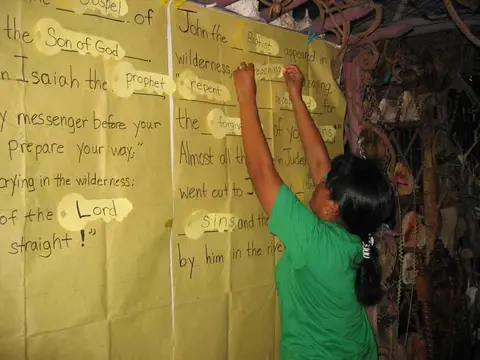 the Gospel of
the Son of God
in Isaiah the prophet
messenger before your
Prepare your way;"
crying in the wilderness:
of the Lord
straight!"
John the Baptist appeared in
wilderness,
"repent for
the of your sins"
Almost all the in Judea
went out to
sins and the
by him in the